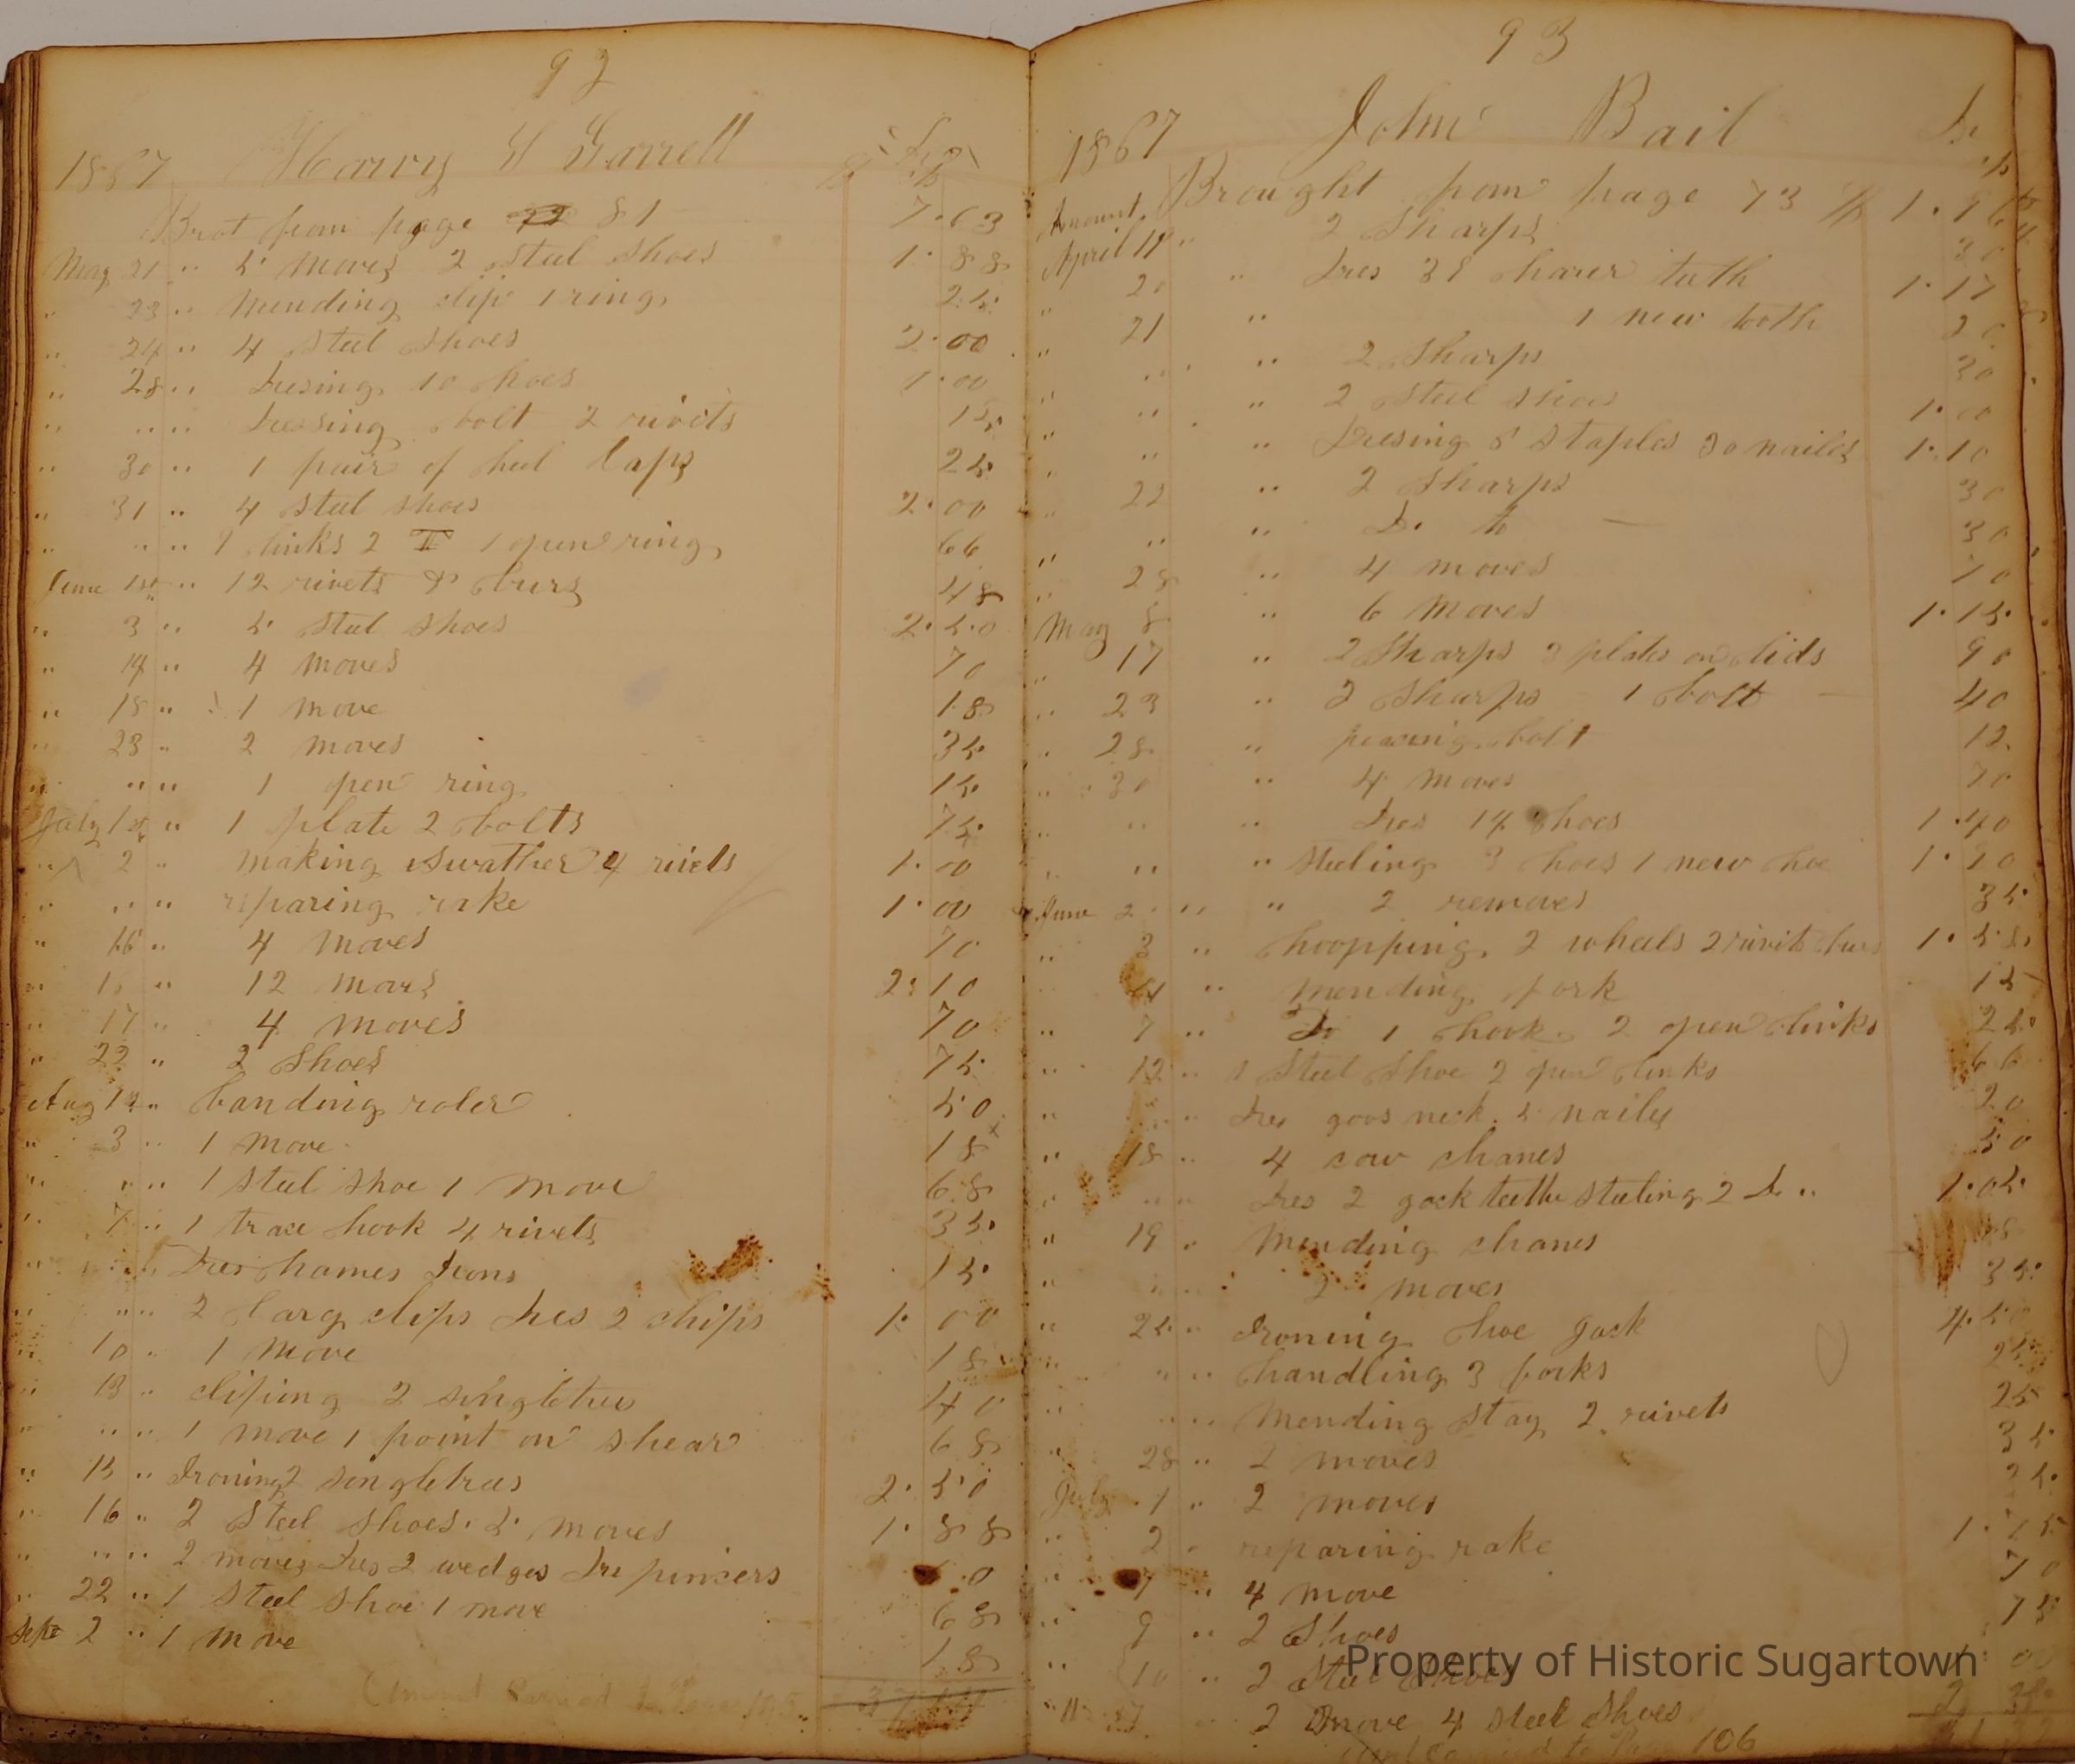 92
1867 Harry G Garrell Dr
Brot from page 81 7.63
May 21 " 5 moves 2 steel shoes 1.88
" 23 " mending clip 1 ring 25
" 24 " 4 steel shoes 2.00
" 28 " Dresing 10 shoes 1.00
" " " Dressing bolt 2 rivets 15
" 30 " 1 pair of heel Caps 25
" 31 " 4 steel shoes 2.00
" " " links 2 1 open ring 66
June 1st " 12 rivets & burs 48
" 3 " 5 steel shoes 2.50
" 14 " 4 moves 70
" 15 " 1 move 18
" 28 " 2 moves 35
" " " 1 open ring 15
July 1st " 1 plate 2 bolts 75
" 2 " making swather 4 rivets 1.00
" " " reparing rake 1.00
" 16 " 4 moves 70
" " 12 moves 2.10
" 17 " 4 moves 70
" 22 " 2 shoes 75
Aug 1st " banding roler 50
" 3 " 1 move 18
" " " 1 steel shoe 1 move 68
" 7 " 1 trace hook 4 rivets 35
" " " Dres hames Irons 15
" " " 2 larg clips Dres 2 clips 1.00
" 10 " 1 move 18
" 13 " cliping 2 singletres 40
" " " 1 move 1 point on shear 68
" 15 " Ironing 2 singletrees 2.50
" 16 " 2 steel shoes 5 moves 1.88
" " " 2 moves Dres 2 wedges Dre pinsers
" 22 " 1 steel shoe 1 move 68
Sept 2 " 1 move 18
Amount Carried to Page 105
93
1867 John Bail Dr
Amount Brought from page 73
April 19 " 2 sharps 30
" 20 " Dres 39 sharer teeth 1.17
" 21 " 1 new tooth 20
" " " 2 sharps 30
" " " 2 steel shoes 1.00
" " " Dresing 8 staples 30 nailes 1.10
" 22 " 2 sharps 30
" " " Do to 30
" 28 " 4 moves 70
May 8 " 6 moves 1.15
" 17 " 2 sharps 3 plates on lids 90
" 23 " 2 sharps 1 bolt 40
" 28 " peacing bolt 12
" 30 " 4 moves 70
" " " Dres 14 shoes 1.40
" " " steeling 3 shoes 1 new shoe
June 2 " " 2 removes 35
" 3 " hoopping 2 wheels 2 rivits burs 1.58
" 4 " mending fork 15
" 7 " Do 1 hook 2 open links 25
" 12 " 1 Steel Shoe 2 open links 66
" " " Dres goos neck 5 nails 20
" 18 " 4 cow chanes 50
" " " Dres 2 gock teethe steeling 2 Do " 1.05
" 19 " Mending chanes
" " " 2 moves 35
" 25 " Ironing live Jack 4.50
" " " handling 3 forks 25
" " " mending stay 2 rivets 25
" 28 " 2 moves 35
July 1 " 2 moves 35
" 2 " reparing rake
" 7 " 4 move 70
" 9 " 2 Shoes 75
" 10 " 2 Steel Shoes
" 17 " 2 move 4 steel shoes
Amt Carried to Page 106
Property of Historic Sugartown